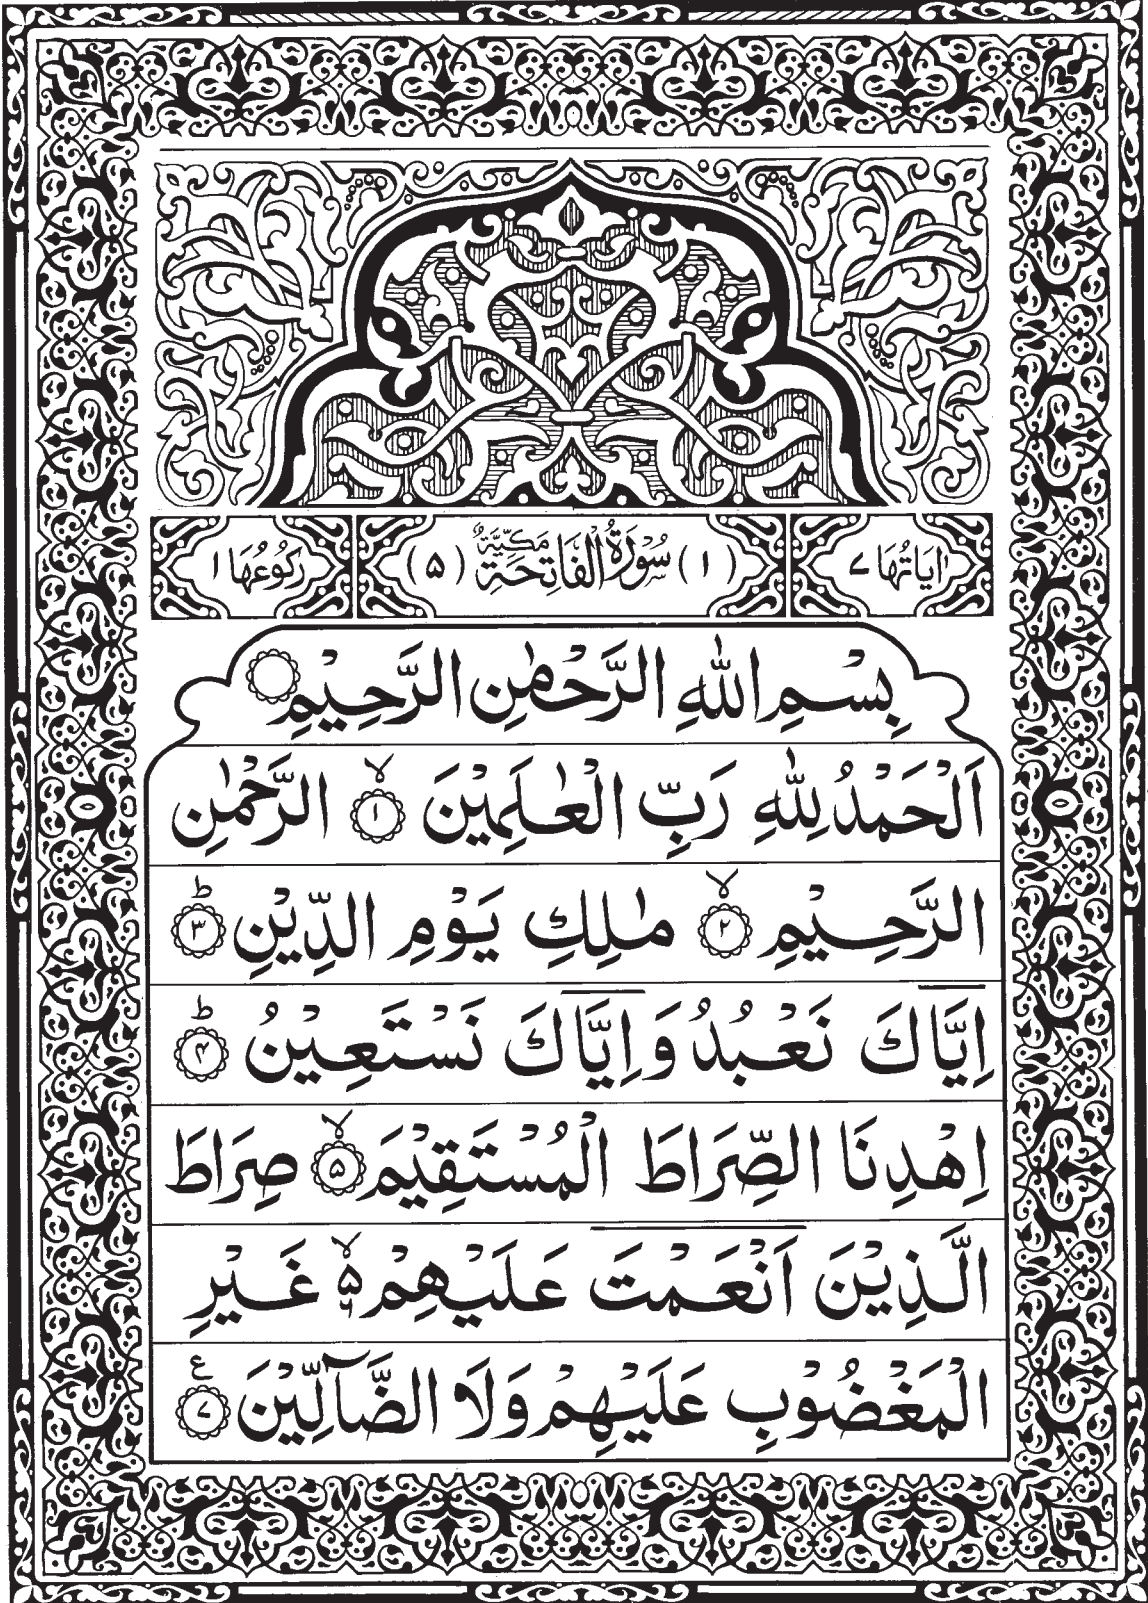 اٰيَاتُهَا ٧ (١) سُوْرَةُ الْفَاتِحَةِ مَكِّيَّةٌ (٥) رُكُوْعُهَا ١
بِسْمِ اللّٰهِ الرَّحْمٰنِ الرَّحِيْمِ ۝
اَلْحَمْدُ لِلّٰهِ رَبِّ الْعٰلَمِيْنَ ۙ‏ ﴿۱﴾ الرَّحْمٰنِ
الرَّحِيْمِ ۙ‏ ﴿۲﴾ مٰلِكِ يَوْمِ الدِّيْنِ ؕ‏ ﴿۳﴾
اِيَّاكَ نَعْبُدُ وَ اِيَّاكَ نَسْتَعِيْنُ ؕ‏ ﴿۴﴾
اِهْدِنَا الصِّرَاطَ الْمُسْتَقِيْمَ ۙ‏ ﴿۵﴾ صِرَاطَ
الَّذِيْنَ اَنْعَمْتَ عَلَيْهِمْ ۙ۬ ۵ ۶ غَيْرِ
الْمَغْضُوْبِ عَلَيْهِمْ وَلَا الضَّآلِّيْنَ ع ﴿۷﴾